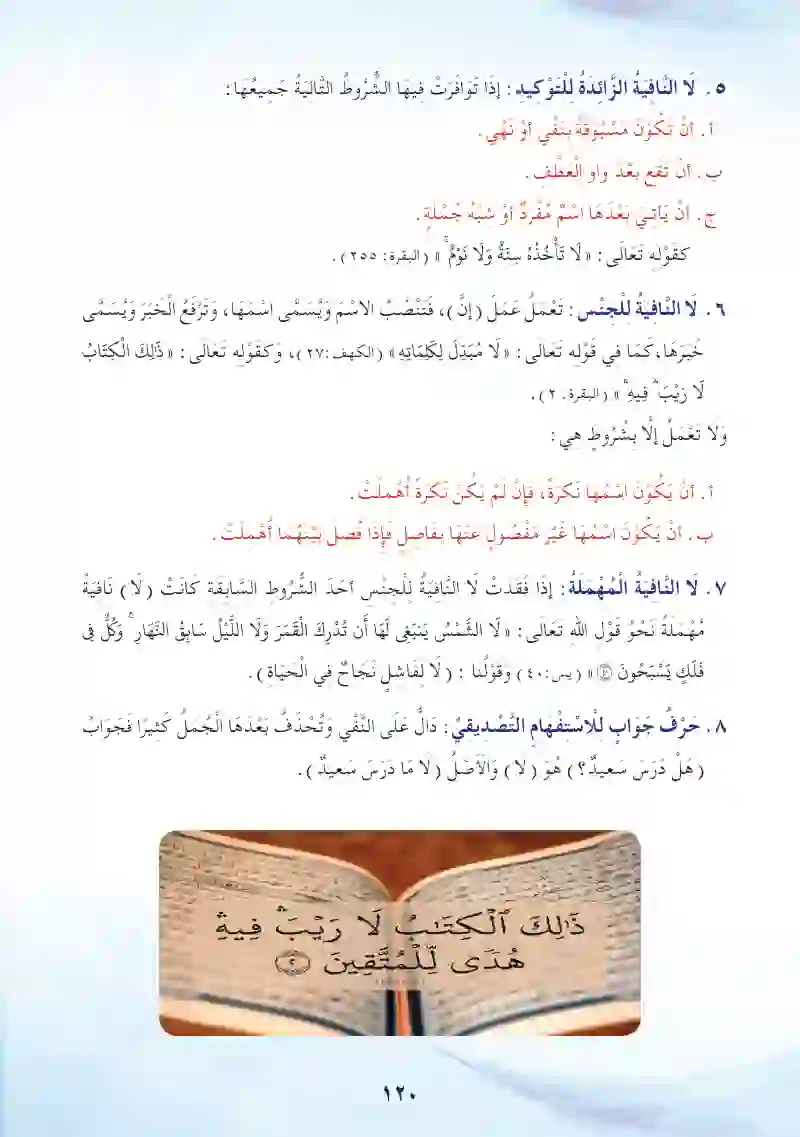 ٥. لَا النَّافِيَةُ الزَّائِدَةُ لِلْتَوْكِيدِ : إِذَا تَوَافَرَتْ فِيهَا الشُّرُوطُ التَّالِيَةُ جَمِيعُهَا:
أ. أَنْ تَكُوْنَ مَسْبُوقَةً بِنَفْيٍ أوْ نَهْيٍ.
ب. أنْ تَقَع بَعْدَ واو الْعَطْفِ.
ج. أنْ يَأتِيَ بَعْدَهَا اسْمٌ مُفْرَدٌ أوْ شِبْهُ جُمْلَةٍ.
كقَوْلِه تَعَالَى: «لَا تَأْخُذُهُ سِنَةٌ وَلَا نَوْمٌ ۚ» (البقرة: ٢٥٥).
٦. لَا النَّافِيَةُ لِلْجِنْسِ: تَعْمَلُ عَمَلَ (إنَّ)، فَتَنْصُبُ الاسْمَ وَيُسَمَّى اسْمَهَا، وَتَرْفَعُ الْخَبَرَ وَيُسَمَّى
خَبَرَهَا،كَمَا في قَوْلِه تَعَالى: «لَا مُبَدِّلَ لِكَلِمَاتِهِ» (الكهف:٢٧)، وَكقَوْلِه تَعَالَى: «ذَٰلِكَ الْكِتَابُ
لَا رَيْبَ ۛ فِيهِ ۛ» (البقرة. ٢).
وَلَا تَعْمَلُ إلَّا بِشُرُوطٍ هِي:
أ. أنْ يَكُوْنَ اسْمُها نَكرَةً، فإنْ لَمْ يَكُنْ نَكرَةً أُهْملَتْ.
ب. أنْ يَكُوْنَ اسْمُهَا غَيْرَ مَفْصُولٍ عَنْهَا بِفَاصِلٍ فَإذَا فُصلَ بَيْنَهُمَا أُهْمِلَتْ.
٧. لَا النَّافِيَةُ الْمُهْمَلَةُ: إذَا فَقَدَتْ لَا النَّافِيَةُ لِلْجِنْسِ أحَدَ الشُّرُوطِ السَّابِقَة كَانَتْ (لَا) نَافِيَةً
مُهْمَلَةً نَحْوُ قَوْل اللهِ تَعَالَى: «لَا الشَّمْسُ يَنبَغِي لَهَا أَن تُدْرِكَ الْقَمَرَ وَلَا اللَّيْلُ سَابِقُ النَّهَارِ ۚ وَكُلٌّ فِي
فَلَكٍ يَسْبَحُونَ ۝٤٠» (يس:٤٠) وقَوْلُنا : (لَا لِفَاشلٍ نَجَاحٌ في الْحَيَاةِ).
٨. حَرْفُ جَوَابٍ لِلْاسْتِفْهَامِ التَّصْديقيِّ: دَالٌّ عَلَى النَّفْي وَتُحْذَفُ بَعْدَهَا الْجُمَلُ كَثِيرًا فَجَوَابُ
(هَلْ دَرَسَ سَعيدٌ؟) هُوَ (لا) وَالأَصْلُ (لَا مَا دَرَسَ سَعيدٌ).
ذَٰلِكَ ٱلْكِتَـٰبُ لَا رَيْبَ ۛ فِيهِ ۛ
هُدًى لِّلْمُتَّقِينَ ٢
١٢٠